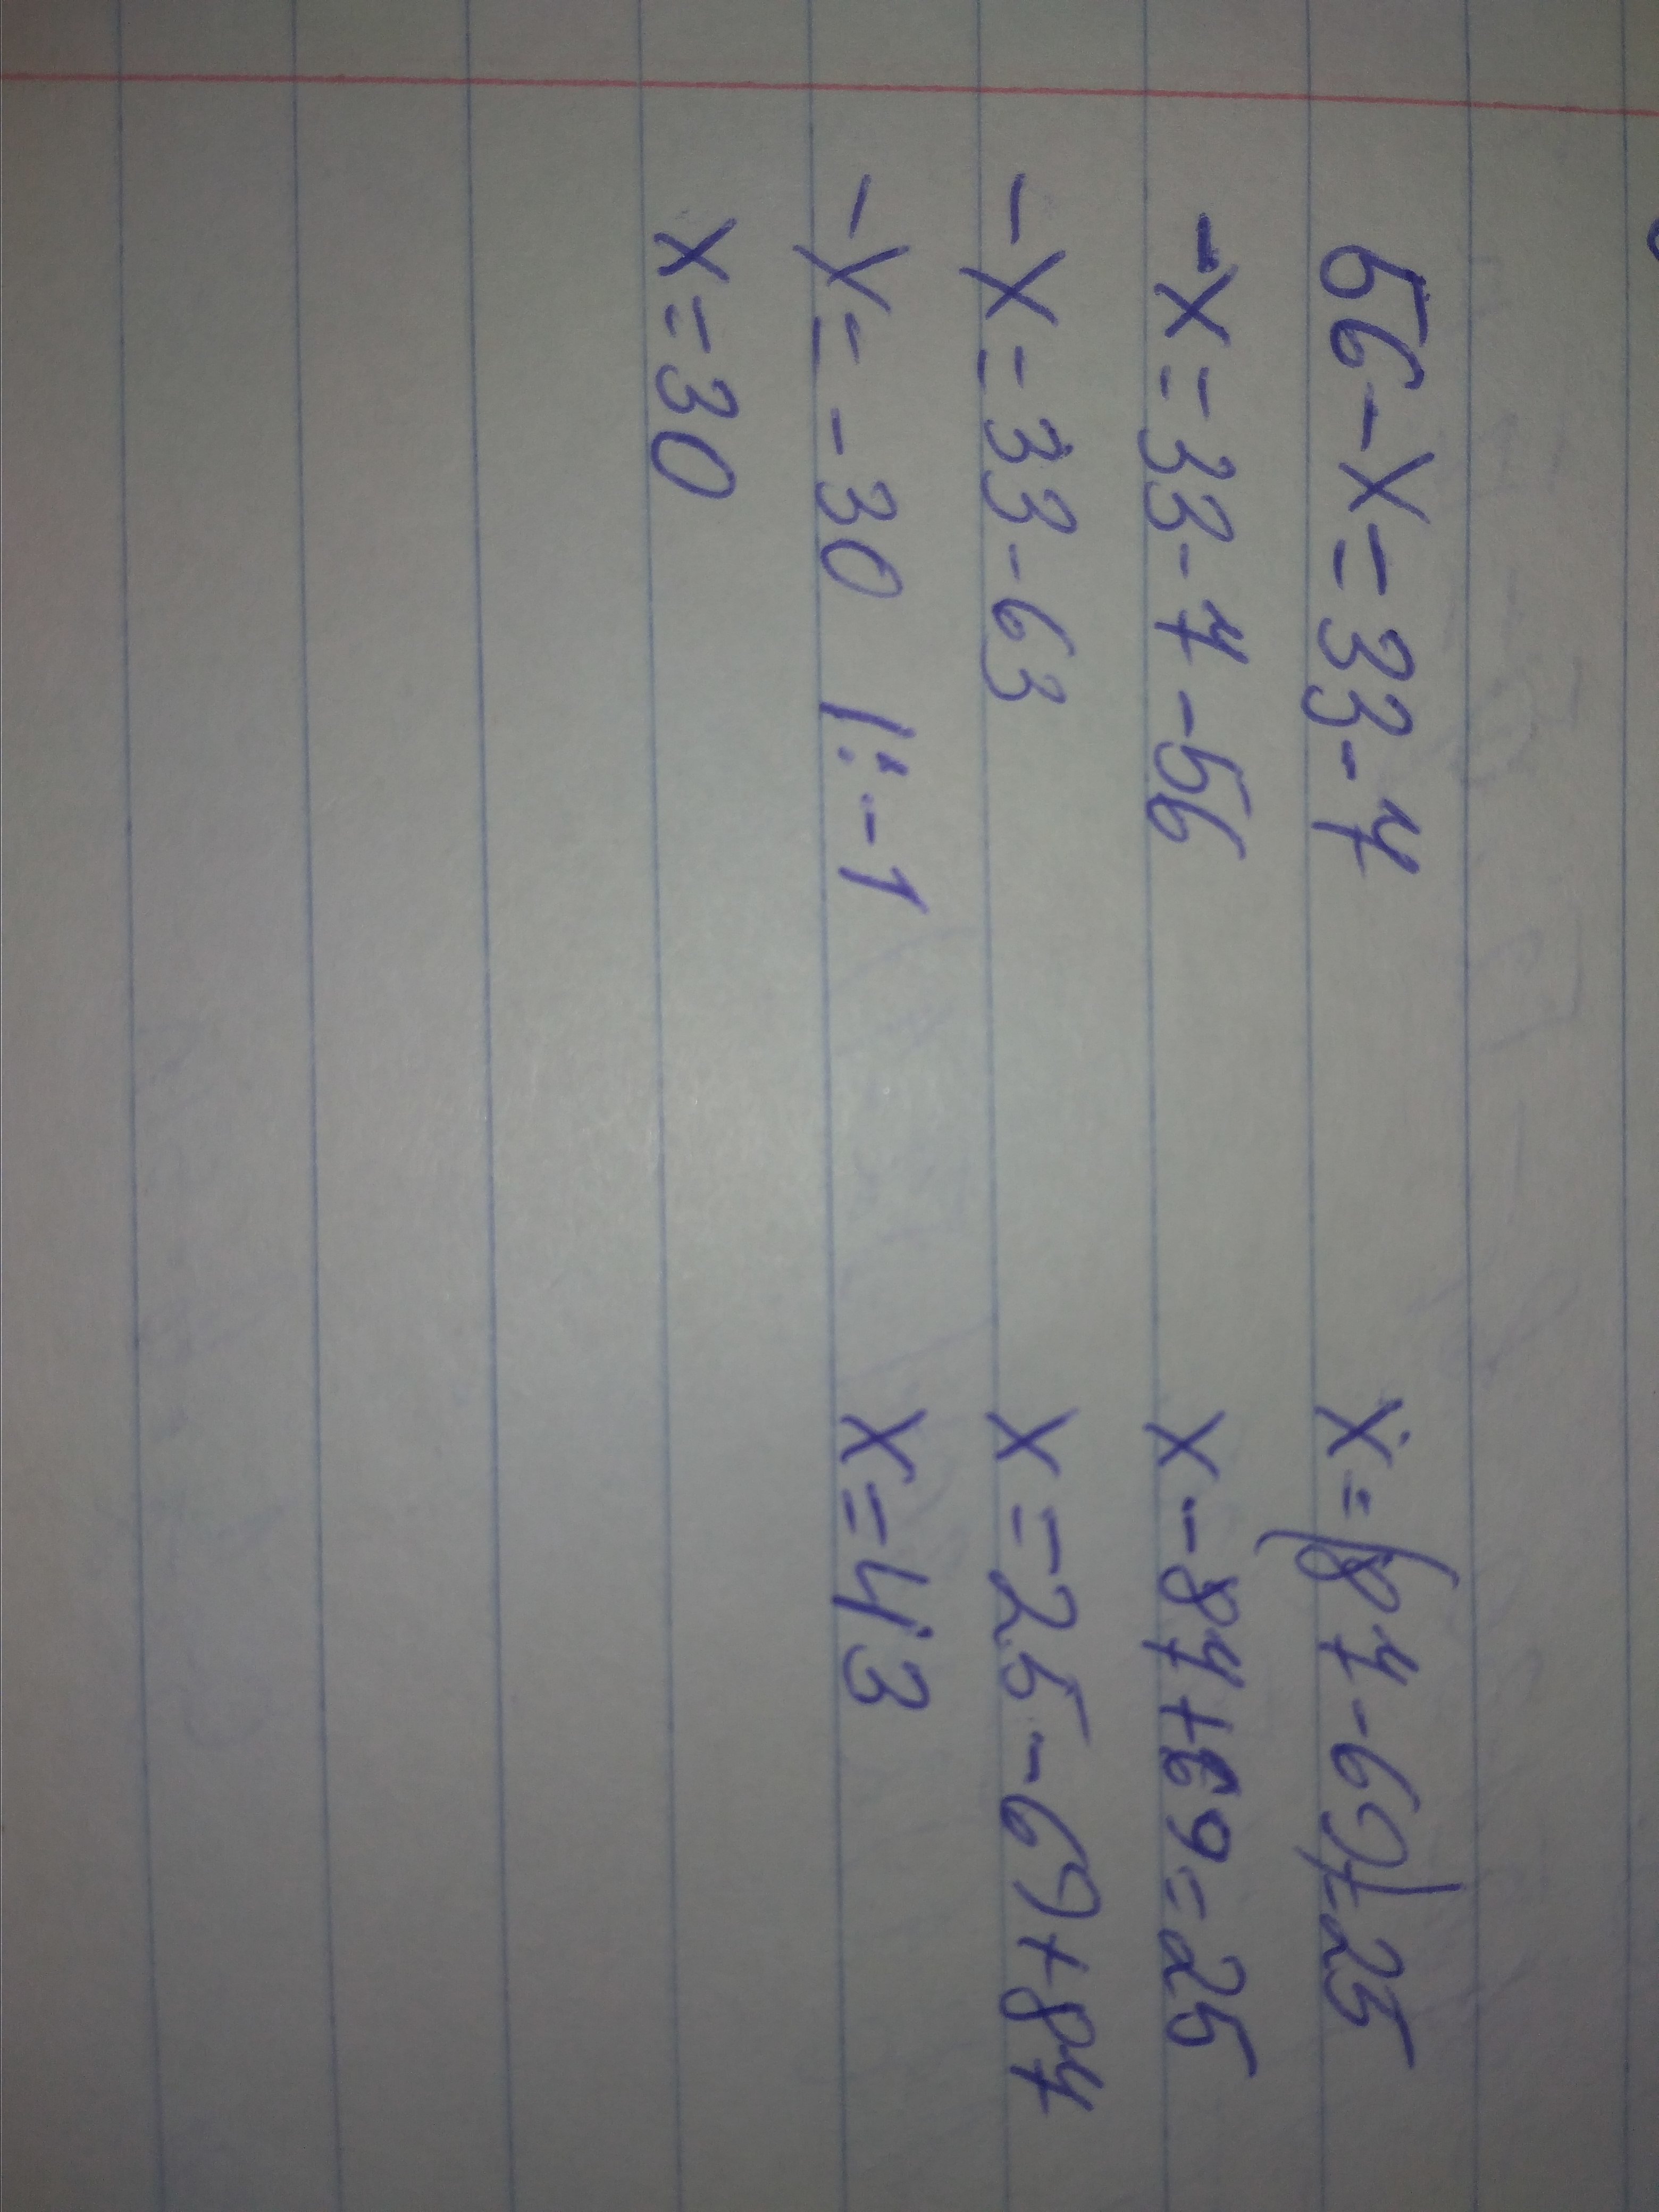 56-x=33-7
-x=33-7-56
-x=33-63
-x=-30 |:-1
x=30
x=(87-69)=25
x-87+69=25
x=25-69+87
x=43